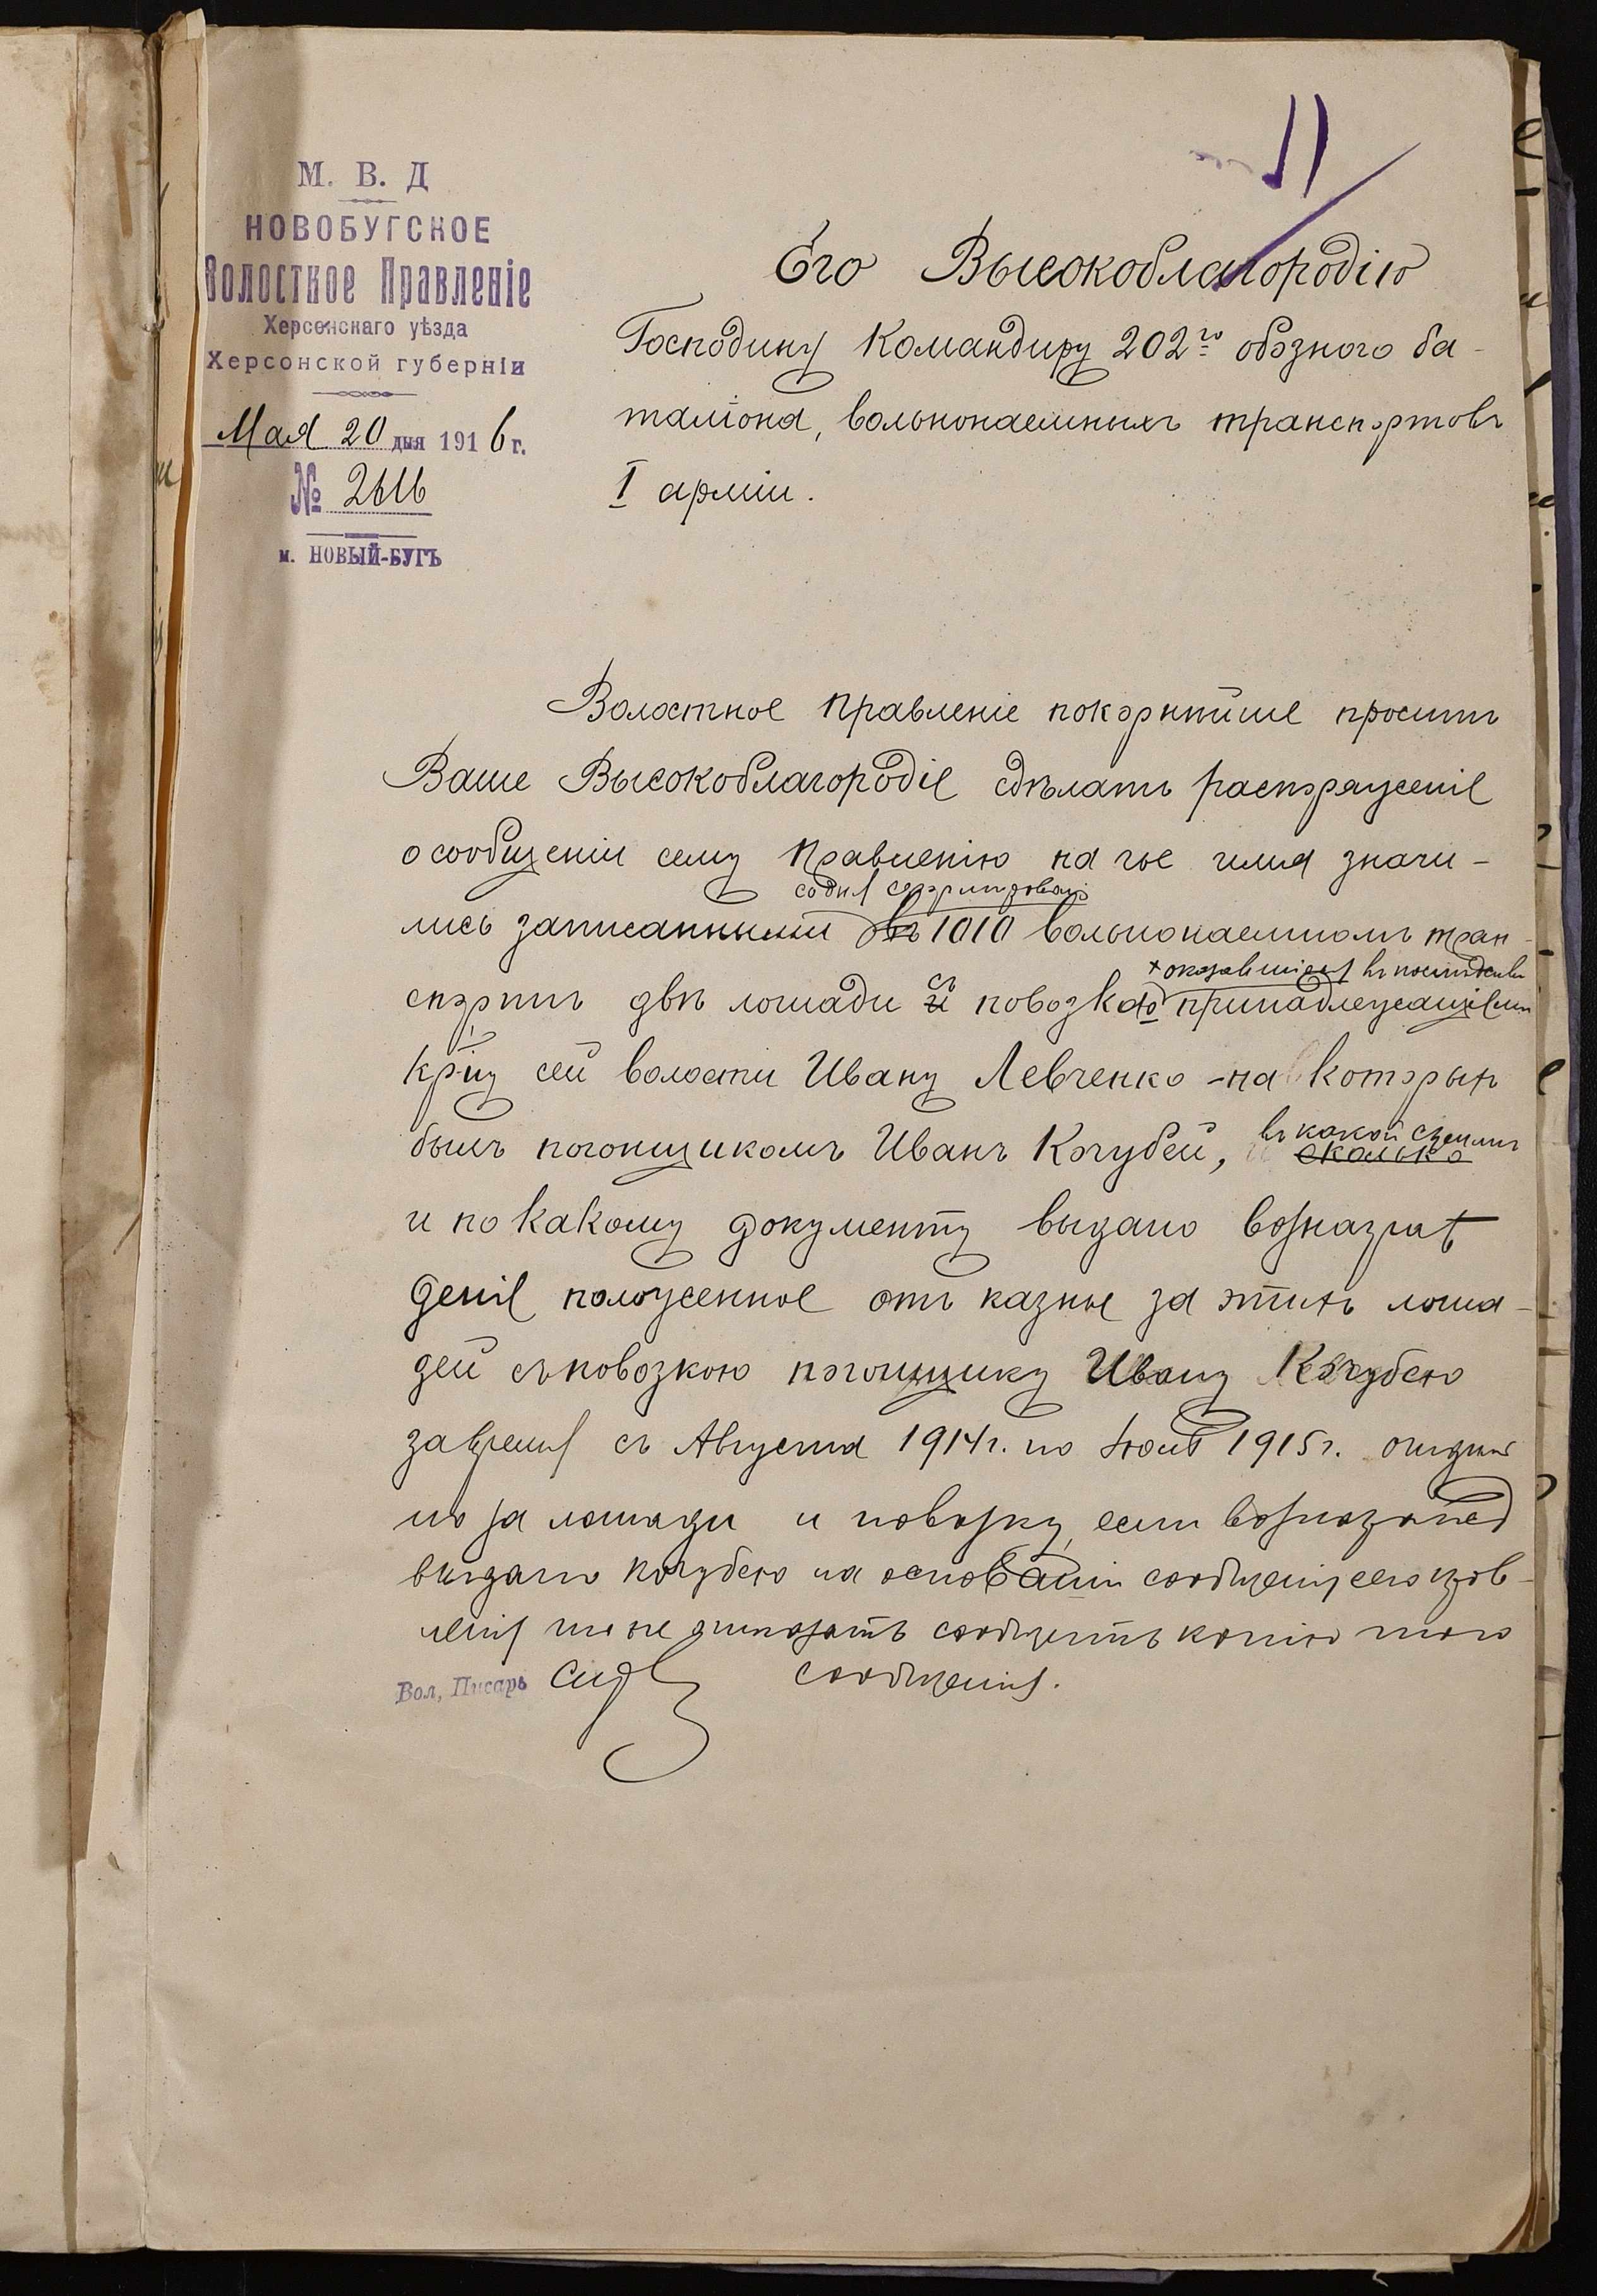 11
М. В. Д
НОВОБУГСКОЕ
Волостное Правленіе
Херсонскаго уѣзда
Херсонской губерніи
Мая 20 дня 1916 г.
№ 2616
м. НОВЫЙ-БУГЪ
Его Высокоблагородію
Господину Командиру 202го обозного ба-
таліона, вольнонаемныхъ транспортовъ
I арміи.
Волостное Правленіе покорнѣйше проситъ
Ваше Высокоблагородіе сдѣлать распоряженіе
о сообщеніи сему Правленію на чье имя значи-
со дня сформированія
лись записанными въ 1010 вольнонаемномъ тран-
+ оказавшіеся въ послѣдствіи
спортѣ двѣ лошади съ повозкою принадлежащими
кр-ну сей волости Ивану Левченко - на которыхъ
былъ погонщикомъ Иванъ Кочубей, въ какой суммѣ
сколько
и по какому документу выдано вознаграж
деніе положенное отъ казны за этихъ лоша-
дей съ повозкою погонщику Ивану Кочубею
за время съ Августа 1914 г. по Іюль 1915 г.
но за лошади и повозку, если
выдано Кочубею на основаніи сообщенія сего прав-
ленія то не сообщить копію того
Вол. Писарь
сообщенія.